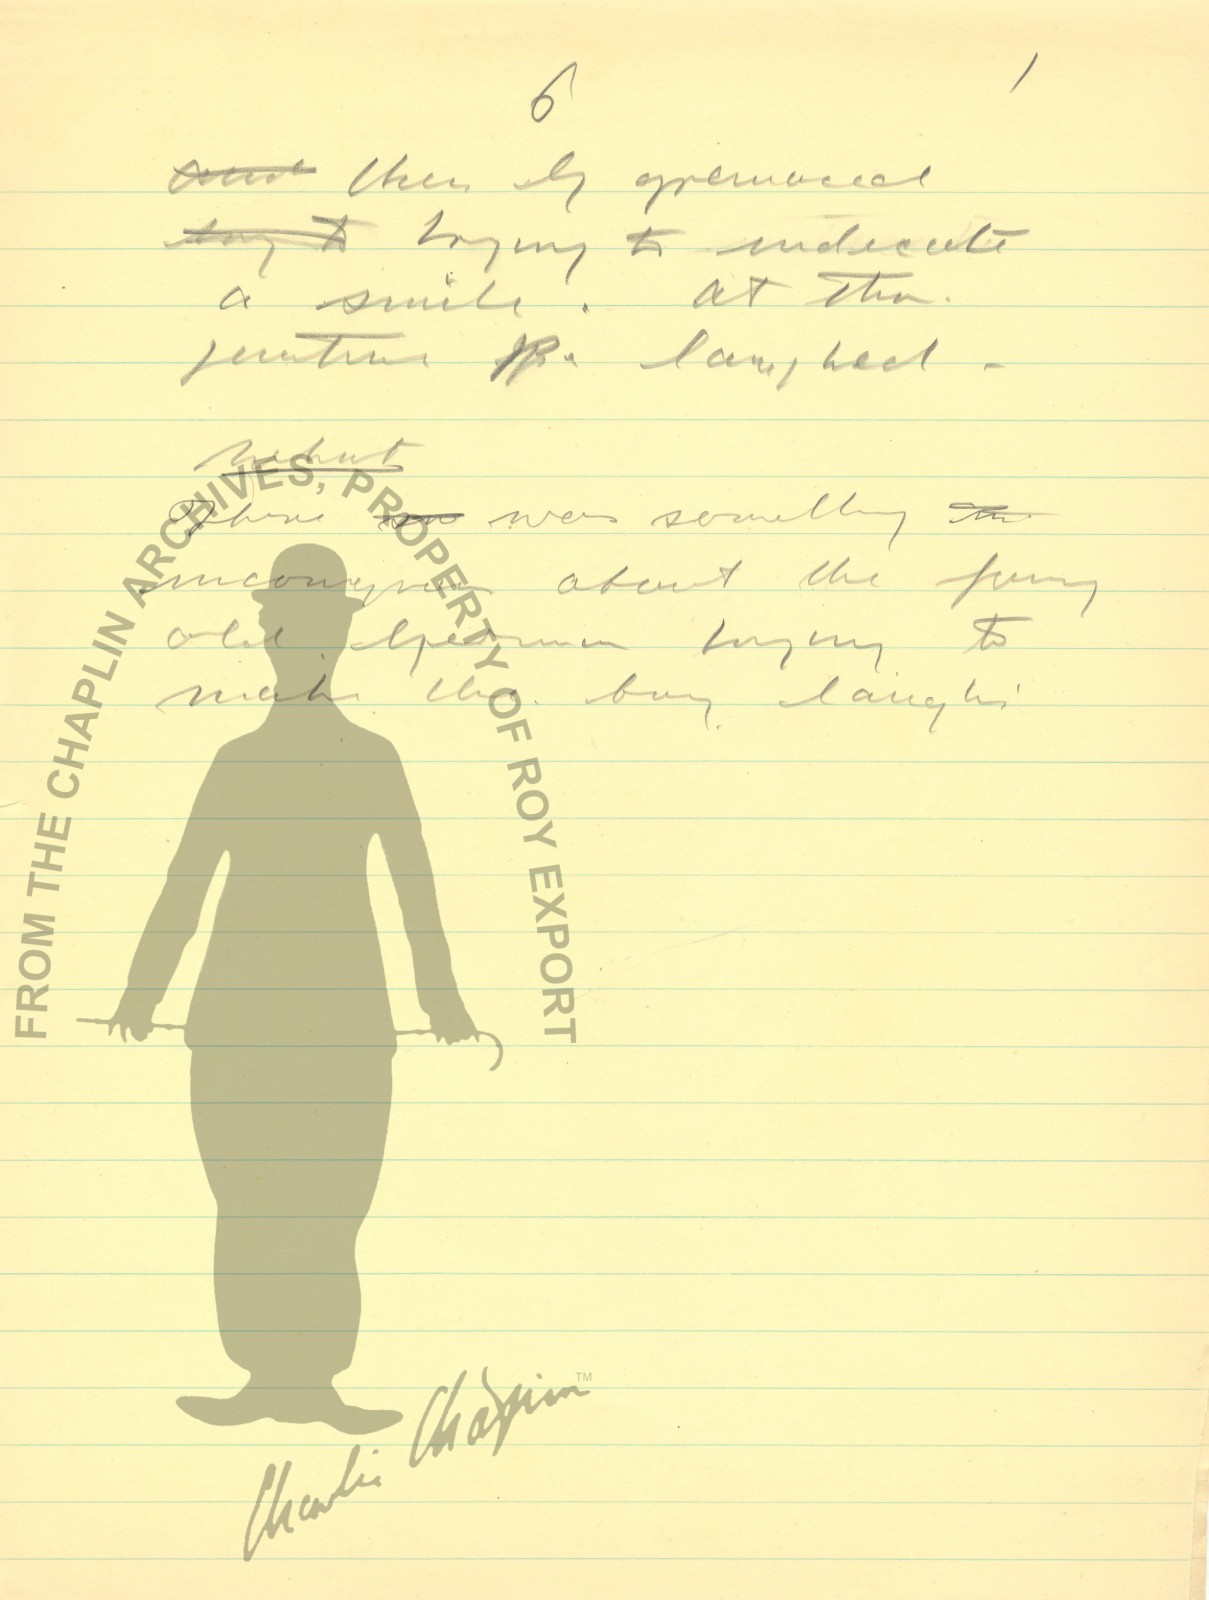 6
then grimaced
trying to indicate
a smile. At this
laughed.
What
There was something
about the funny
old trying to
make the boy laugh
FROM THE CHAPLIN ARCHIVES, PROPERTY OF ROY EXPORT
Charlie Chaplin™